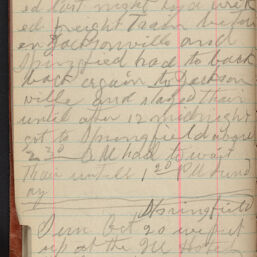 ed last night by a wreck
ed freight Train betwe
en Jacksonville and
Springfied had to back
back again to Jackson
ville and staged their
until after 12 midnight
got to Springfield about
2 30 AM had to wait
their untill 1 20 PM Sund
ay
Springfield
Sun Oct 20 we put
up at the Ill Hotel